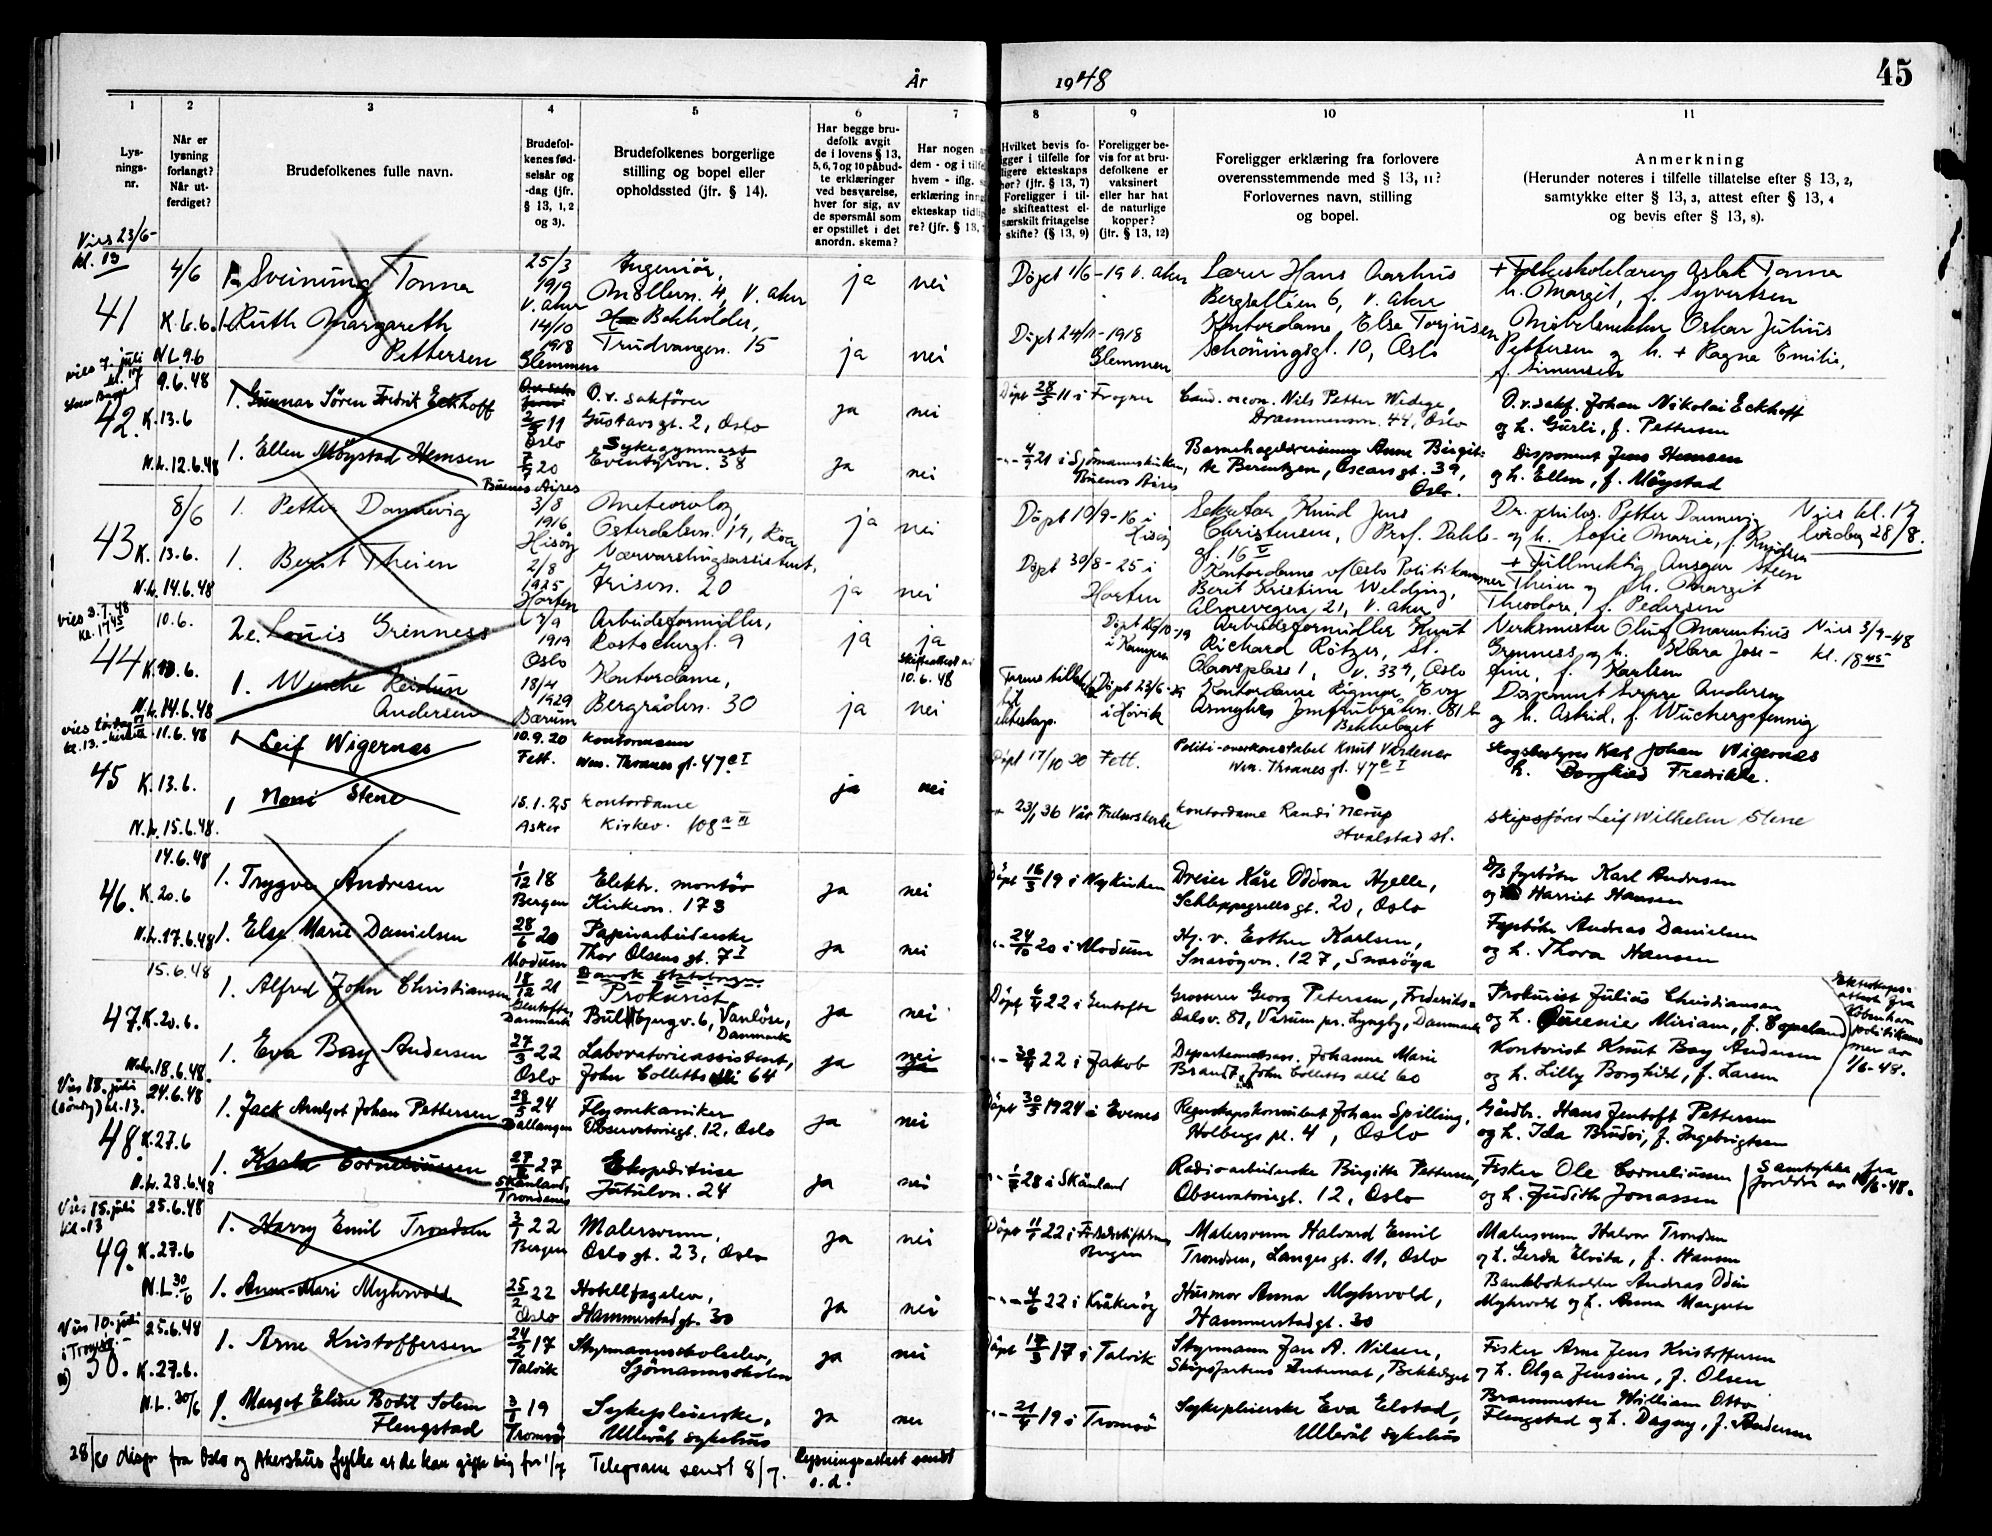 År 1948
45
1 2 3 4 5 6 7 8 9 10 11
Lys-
nings-
nr.
Når er
lysning
forlangt?
Når ut-
ferdiget?
Brudefolkenes fulle navn.
Brudefol-
kenes fød-
selsår og
-dag (jfr.
§ 13, 1, 2
og 3).
Brudefolkenes borgerlige
stilling og bopel eller
opholdssted (jfr. § 14).
Har begge bru-
defolk avgit
de i lovens § 13,
5, 6, 7 og 10 påbud-
te erklæringer
ved besvarelse,
hver for sig, av
de spørsmål som
er opstillet i det
anordn. skema?
Har nogen
dem - og i tilfel
hvem - iflg.
erklæring inng
ekteskap tidlig
re? (jfr. § 13,
Hvilket bevis fo
gger i tilfelle for
ligere ekteskaps
hør? (jfr. § 13, 7)
Foreligger i til-
e skifteattest el-
særskilt fritagelse
skifte? (§ 13, 9)
Foreligger be-
vis for at bru-
defolkene er
vaksinert
eller har hat
de naturlige
kopper?
(jfr. § 13, 12)
Foreligger erklæring fra forlovere
overensstemmende med § 13, 11?
Forlovernes navn, stilling
og bopel.
Anmerkning
(Herunder noteres i tilfelle tillatelse efter § 13, 2,
samtykke efter § 13, 3, attest efter § 13, 4
og bevis efter § 13, 8).
Vies 23/6-
kl. 13
41
4/6
K. 6.6.
N.L. 9.6
Sveinung Tonna
1. Ruth Margareth
Pettersen
25/3
1919
V. Aker
14/10
1918
Glemmen
Ingeniør,
Møllervn. 4, V. Aker
Bokholder,
Trudvangvn. 15
ja nei
ja nei
Döpt 1/6-19 V. Aker
Döpt 24/11-1918
Glemmen
Lærer Hans Aarhus
Bergsallèen 6, V. Aker
Kontordame Else Torjusen
Schöningsgt. 10, Oslo
+ Folkeskolelærer Aslak Tonna
h. Margit, f. Syvertsen
Möbelsnekker Oskar Julius
Pettersen og h. + Ragna Emilie,
f. Simensen
vies 7. juli
kl. 17
42.
9.6.48
K. 13.6
N.L. 12.6.48
1. Gunnar Sören Fredrik Eckhoff
1. Ellen Möystad Hemsen
11
Oslo
20
Buenos Aires
O.r. sakförer
Gustavsgt. 2, Oslo
Sykegymnast
Eventyrvn. 38
ja nei
ja nei
Döpt 28/5 11 i Frogner
-"- 21 i Sjömannskirken,
Buenos Aires
Cand. oecon. Nils Petter Wedege,
Drammensvn. 44, Oslo
Barnehagelærerinne Anne Birgit-
te Berentzen, Oscarsgt. 39,
Oslo.
O.r.sakf. Johan Nikolai Eckhoff
og h. Gurli, f. Pettersen
Disponent Jens Hemsen
og h. Ellen, f. Möystad
43
8/6
K. 13.6.
N.L. 14.6.48
1. Petter Dannevig
1. Berit Theien
3/8
1916
Hisöy
2/8
1925
Horten
Meteorolog,
Österdalsvn. 19, Roa
Værvarslingsassistent,
Frisvn. 20
ja nei
ja nei
Döpt 10/9-16 i
Hisöy
Döpt 30/8-25 i
Horten
Sekretær Knud Jens
Christensen, Prof. Dahls-
gt. 16 V
Kontordame v/Oslo Politikammer
Berit Kristine Welding,
Almevegen 21, V. Aker
Dr. philos. Petter Dannevig
og h. Sofie Marie, f. Knudsen
+ Fullmektig Ansgar Steen
Theien og h. Margit
Theodora, f. Pedersen
Vies kl. 17
lördag 28/8.
vies 3.7.48
kl. 17 45
44
10.6.
K. 13.6.
N.L. 14.6.48
2 e. Louis Grenness
1. Wenche Reidun
Andersen
1919
Oslo
18/4
1929
Bærum
Arbeidsformidler,
Rostockergt. 9
Kontordame,
Bergrådvn. 30
ja ja
Skifteattest av
10.6.48
ja nei
i Kampen
Döpt 23/6-29
i Hövik
Arbeidsformidler Kurt
Richard Rötzer, St.
Olavsplass 1, v. 339, Oslo
Kontordame Rigmor Evy
Asmyhr, Jomfrubråtvn. 81 b
Bekkelaget
Verksmester Oluf Marentius
Grenness og h. Klara Jose-
fine, f. Karlsen
Disponent Sverre Andersen
og h. Astrid, f. Wucherpfennig
Vies 3/7-48
kl. 18 45
vies lördag
kl. 13. - kirka
45
11.6.48
K. 13.6.
N.L. 15.6.48.
1 Leif Wigernæs
1 Noni Stene
10.9.20
Fett.
15.1.25
Asker
kontormann
Wm. Thranes gt. 47 c I
kontordame
Kirkev. 108 a III
ja nei
Döpt 17/10 20 Fett.
-"- 23/1 36 Vår Frelsers kirke
Politi-overkonstabel Knut Vardenær
Wm. Thranes gt. 47 c I
kontordame Randi Nerup
Hvalstad st.
Skogbestyrer Karl Johan Wigernæs
h. Borghild Fredrikke.
skipsförer Leif Wilhelm Stene
46.
14.6.48
K. 20.6
N.L. 17.6.48
1. Trygve Andresen
1. Else Marie Danielsen
1/12 18
Bergen
28/6 20
Modum
Elektr. montör
Kirkevn. 173
Papirarbeiderske
Thor Olsens gt. 7 I
ja nei
ja nei
Döpt 16/3 19 i Nykirken
-"- 24/10 20 i Modum
Dreier Kåre Oddvar Hjelle,
Schleppegrells gt. 20, Oslo
Hj. v. Esther Karlsen,
Snaröyvn. 127, Snaröya
D/S fyrböter Karl Andresen
og h. Harriet Hansen
Fyrböter Andreas Danielsen
og h. Thora Hansen
47.
15.6.48
K. 20.6.
N.L. 18.6.48.
1. Alfred John Christiansen
1. Eva Bay Andersen
18/12 21
Gentofte,
Danmark
27/3 22
Oslo
Dansk statsborger
Prokurist
Bulbjergv. 6, Vanlöse,
Danmark
Laboratorieassistent,
John Colletts allé 64
ja nei
ja nei
Döpt 22 i Gentofte
-"- 22 i Jakob
Grosserer Georg Petersen, Frederiks-
dalsv. 81, Virum pr. Lyngby, Danmark
Departementssekr. Johanne Marie
Brandt, John Colletts allé 60
Prokurist Julius Christiansen
og h. Queenie Miriam, f. Copeland
Kontorist Knut Bay Andersen
og h. Lilly Borghild, f. Larsen
Ekteskaps-
attest fra
København
politikam-
mer av
1/6-48.
Vies 18. juli
(söndg) kl. 13.
48.
24.6.48
K. 27.6
N.L. 28.6.48
1. Jack Arnljot Johan Pettersen
1. Karla Corneliussen
28/5 24
Ballangen
27 27
Skånland,
Trondenes
Flymekaniker
Observatoriegt. 12, Oslo
Ekspeditrise
Jutulvn. 24
ja nei
ja nei
Döpt 30/5 1924 i Evenes
-"- 28 i Skånland
Regnskapskonsulent Johan Spilling,
Holbergs pl. 4, Oslo
Radioarbeiderske Birgitte Pettersen,
Observatoriegt. 12, Oslo
Gårdbr. Hans Jentoft Pettersen
og h. Ida Brudvi, f. Ingebrigtsen
Fisker Ole Corneliussen
og h. Judith Jonassen
Samtykke fra
foreldre av 16/6-48.
Vies 15. juli
kl. 13
49.
25.6.48
K. 27.6
N.L. 30/6
1. Harry Emil Trondsen
1. Anne-Mari Myhrvold
22
Bergen
25/2 22
Oslo
Malersvenn,
Oslo gt. 23, Oslo
Hotellfagelev,
Hammerstadgt. 30
ja nei
ja nei
Döpt 22 i
Bergen
-"- 4/6 22 i Kråkeröy
Malersvenn Halvard Emil
Trondsen, Langes gt. 11, Oslo
Husmor Anna Myhrvold,
Hammerstadgt. 30
Malersvenn Halvor Trondsen
og h. Gerda Elvita, f. Hansen
Bankbokholder Andreas Odin
Myhrvold og h. Anna Margrete
Vies 10. juli
i Tromsö.
50.
25.6.48
K. 27.6.
N.L. 30/6
1. Arne Kristoffersen
1. Margot Eline Bodil Solem
Flengstad
24/2 17
Talvik
19
Tromsö
Styrmannskoleelev,
Sjömannsskolen
Sykepleierske,
Ullevål sykehus
ja nei
ja nei
Döpt 17/3 17 i Talvik
-"- 21/4 19 i Tromsö
Styrmann Jan A. Nilsen,
Skipsfartens Internat, Bekkelaget
Sykepleierske Eva Elstad,
Ullevål sykehus
Fisker Arne Jens Kristoffersen
og h. Olga Jensine, f. Olsen
Brannmester William Otto
Flengstad og h. Dagny, f. Andersen
28/6 disp. fra Oslo og Akershus fylke at de kan gifte sig för 1/7 Telegram sendt 8/7. Lysningsattest sendt
s.d.